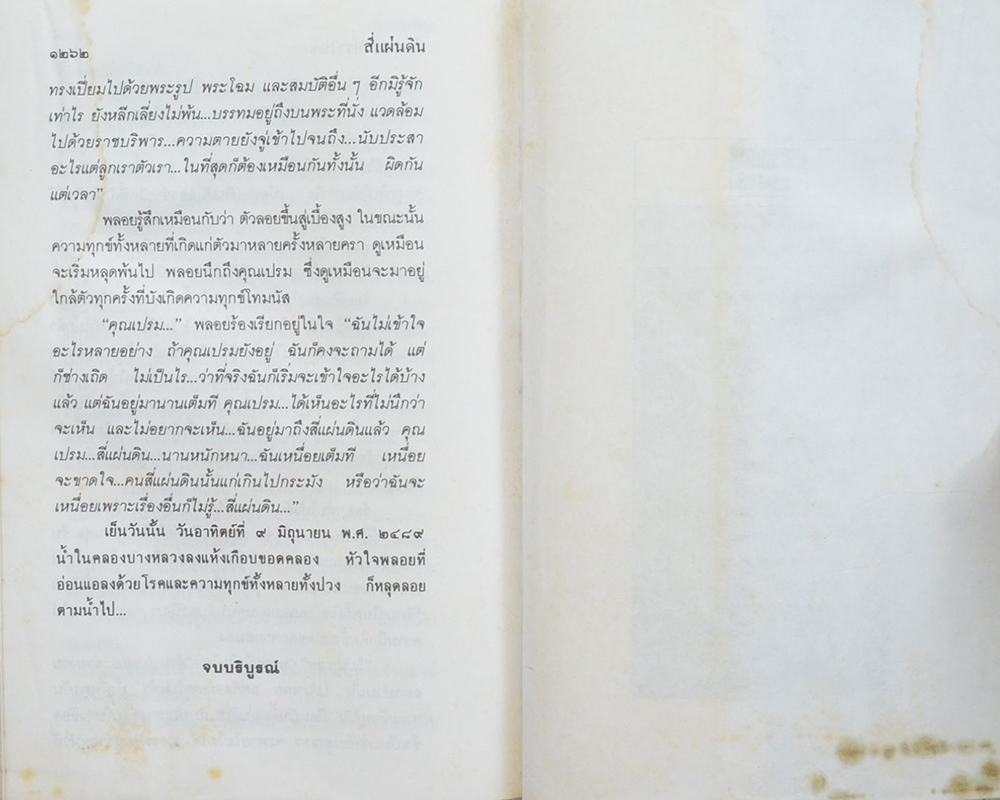 ๑๒๖๒
สี่แผ่นดิน
ทรงเปี่ยมไปด้วยพระรูป พระโฉม และสมบัติอื่น ๆ อีกมิรู้จัก
เท่าไร ยังหลีกเลี่ยงไม่พ้น...บรรทมอยู่ถึงบนพระที่นั่ง แวดล้อม
ไปด้วยราชบริพาร...ความตายยังจู่เข้าไปจนถึง...นับประสา
อะไรแต่ลูกเราตัวเรา...ในที่สุดก็ต้องเหมือนกันทั้งนั้น ผิดกัน
แต่เวลา”
พลอยรู้สึกเหมือนกับว่า ตัวลอยขึ้นสู่เบื้องสูง ในขณะนั้น
ความทุกข์ทั้งหลายที่เกิดแก่ตัวมาหลายครั้งหลายครา ดูเหมือน
จะเริ่มหลุดพ้นไป พลอยนึกถึงคุณเปรม ซึ่งดูเหมือนจะมาอยู่
ใกล้ตัวทุกครั้งที่บังเกิดความทุกข์โทมนัส
“คุณเปรม...” พลอยร้องเรียกอยู่ในใจ “ฉันไม่เข้าใจ
อะไรหลายอย่าง ถ้าคุณเปรมยังอยู่ ฉันก็คงจะถามได้ แต่
ก็ช่างเถิด ไม่เป็นไร...ว่าที่จริงฉันก็เริ่มจะเข้าใจอะไรได้บ้าง
แล้ว แต่ฉันอยู่มานานเต็มที คุณเปรม...ได้เห็นอะไรที่ไม่นึกว่า
จะเห็น และไม่อยากจะเห็น...ฉันอยู่มาถึงสี่แผ่นดินแล้ว คุณ
เปรม...สี่แผ่นดิน...นานหนักหนา...ฉันเหนื่อยเต็มที เหนื่อย
จะขาดใจ...คนสี่แผ่นดินนั้นแก่เกินไปกระมัง หรือว่าฉันจะ
เหนื่อยเพราะเรื่องอื่นก็ไม่รู้...สี่แผ่นดิน...”
เย็นวันนั้น วันอาทิตย์ที่ ๙ มิถุนายน พ.ศ. ๒๔๘๙
น้ำในคลองบางหลวงลงแห้งเกือบขอดคลอง หัวใจพลอยที่
อ่อนแอลงด้วยโรคและความทุกข์ทั้งหลายทั้งปวง ก็หลุดลอย
ตามน้ำไป...
จบบริบูรณ์